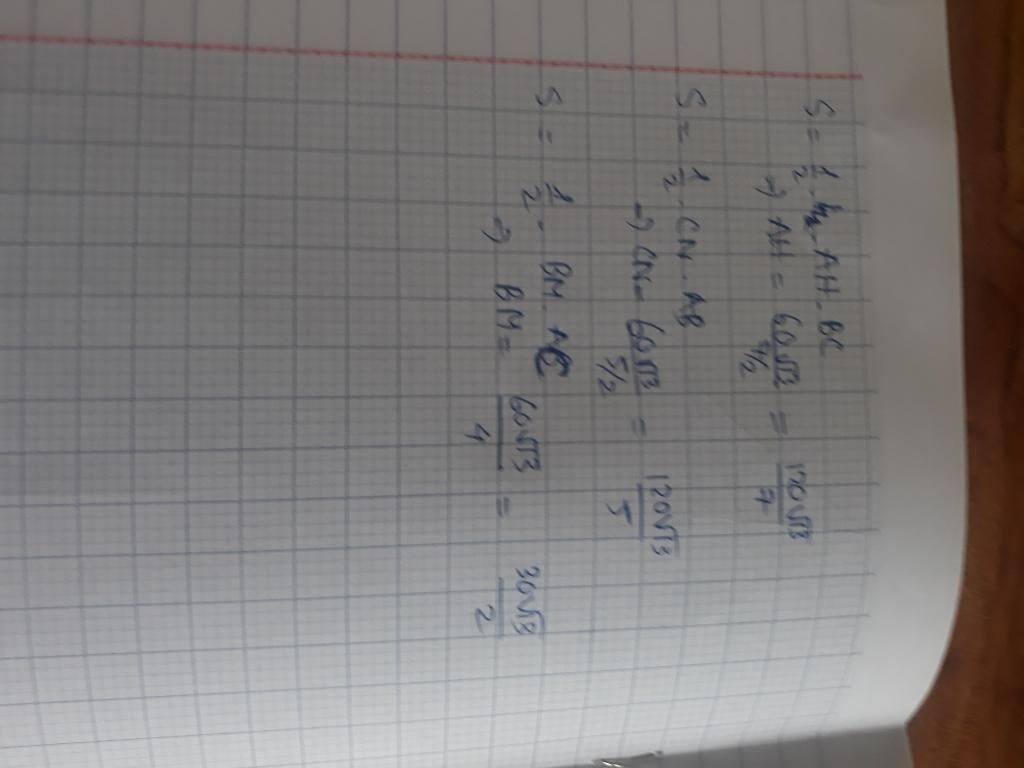 S = 1/2 . AH . BC
=> AH = 60√3 / 7/2 = 120√3 / 7
S = 1/2 . CN . AB
=> CN = 60√3 / 5/2 = 120√3 / 5
S = 1/2 . BM . AC
=> BM = 60√3 / 4 = 30√3 / 2